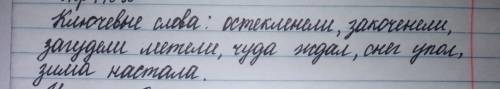 Ключевые слова: остекленели, закоченели,
загудели метели, чуда ждал, снег упал,
зима настала.